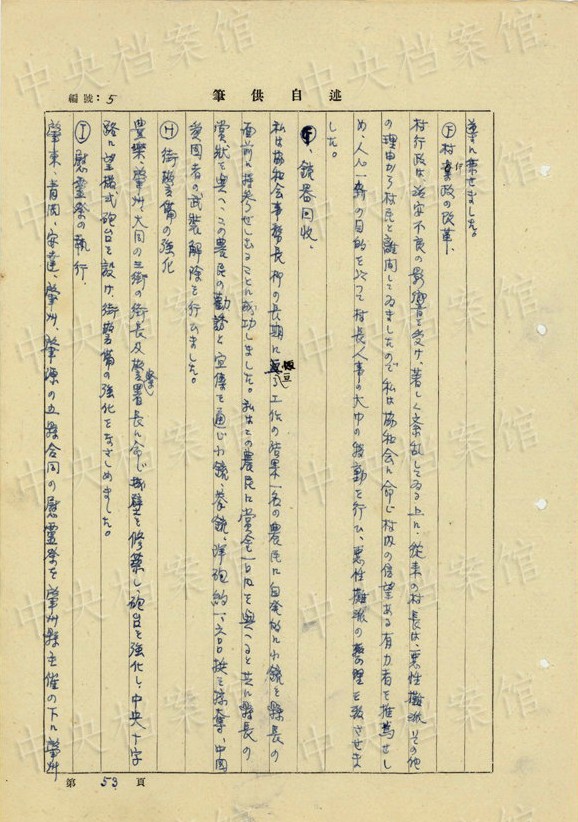 述自供筆
編號:5
導に乗せました。
Ⓕ村行政の改革、
村行政は治安不良の影響を受け、著しく紊乱してゐる上に、従来の村長は、悪性攤派、その他
の理由から村民と離間してゐましたので私は協和会に命じ村内の信望ある有力者を推薦せし
め、人心一新の目的を以つて村長人事の大巾の移動を行ひ、悪性攤派の整理を致させま
した。
、銃器回収、
私は協和会事務長柳の長期に亘る工作の結果一名の農民に自発的に小銃を縣長の
面前に持参せしむることに成功しました。私はこの農民に賞金一百円を与へると共に縣長の
賞状を与へ、この農民の勧誘と宣傳を通じ小銃、拳銃、洋砲約一、六〇〇挺を掠奪、中国
愛国者の武装解除を行ひました。
Ⓗ街警備の強化
豊楽、肇州、大同の三街の街長及警察署長に命じ城壁を修築し、砲台を強化し中央十字
路に望楼式砲台を設け、街警備の強化をなさしめました。
Ⓘ慰霊祭の執行、
肇東、青岡、安達、肇州、肇源の五縣合同の慰霊祭を肇州縣主催の下に肇州
第53頁
中央档案馆